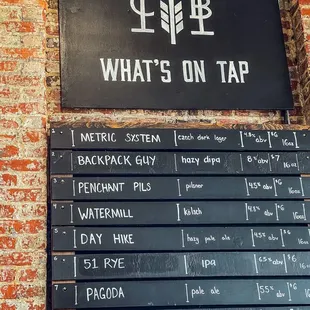 WHAT'S ON TAP
METRIC SYSTEM czech dark lager 4.8% abv $6
BACKPACK GUY hazy dipa 8% abv $7 16oz
PENCHANT PILS pilsner 4.5% abv $6
WATERMILL kölsch abv
DAY HIKE hazy pale ale 4.5% abv
51 RYE ipa 6.5% abv $6
PAGODA pale ale 5.5% abv